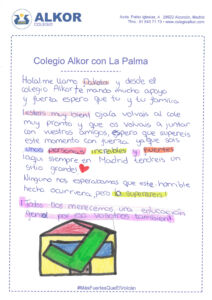 ALKOR
COLEGIO
Colegio Alkor con La Palma
Hola! me llamo y desde el
colegio Alkor te mando mucho apoyo
y fuerza espero que tu y tu familia
esteis muy bien! ojala volvais al cole
muy pronto y que os volvais a juntar
con vuestros amigos, espero que supereis
este momento con fuerza ya que sois
unas personas increibles y fuertes
aqui siempre en Madrid tendreis un
sitio grande! ❤
Ninguno nos esperabamos que este horrible
hecho ocurriera, pero lo superareis!
¡Todos nos merecemos una educación
genial por eso vosotros tambien!
#MásFuertesQueElVolcán